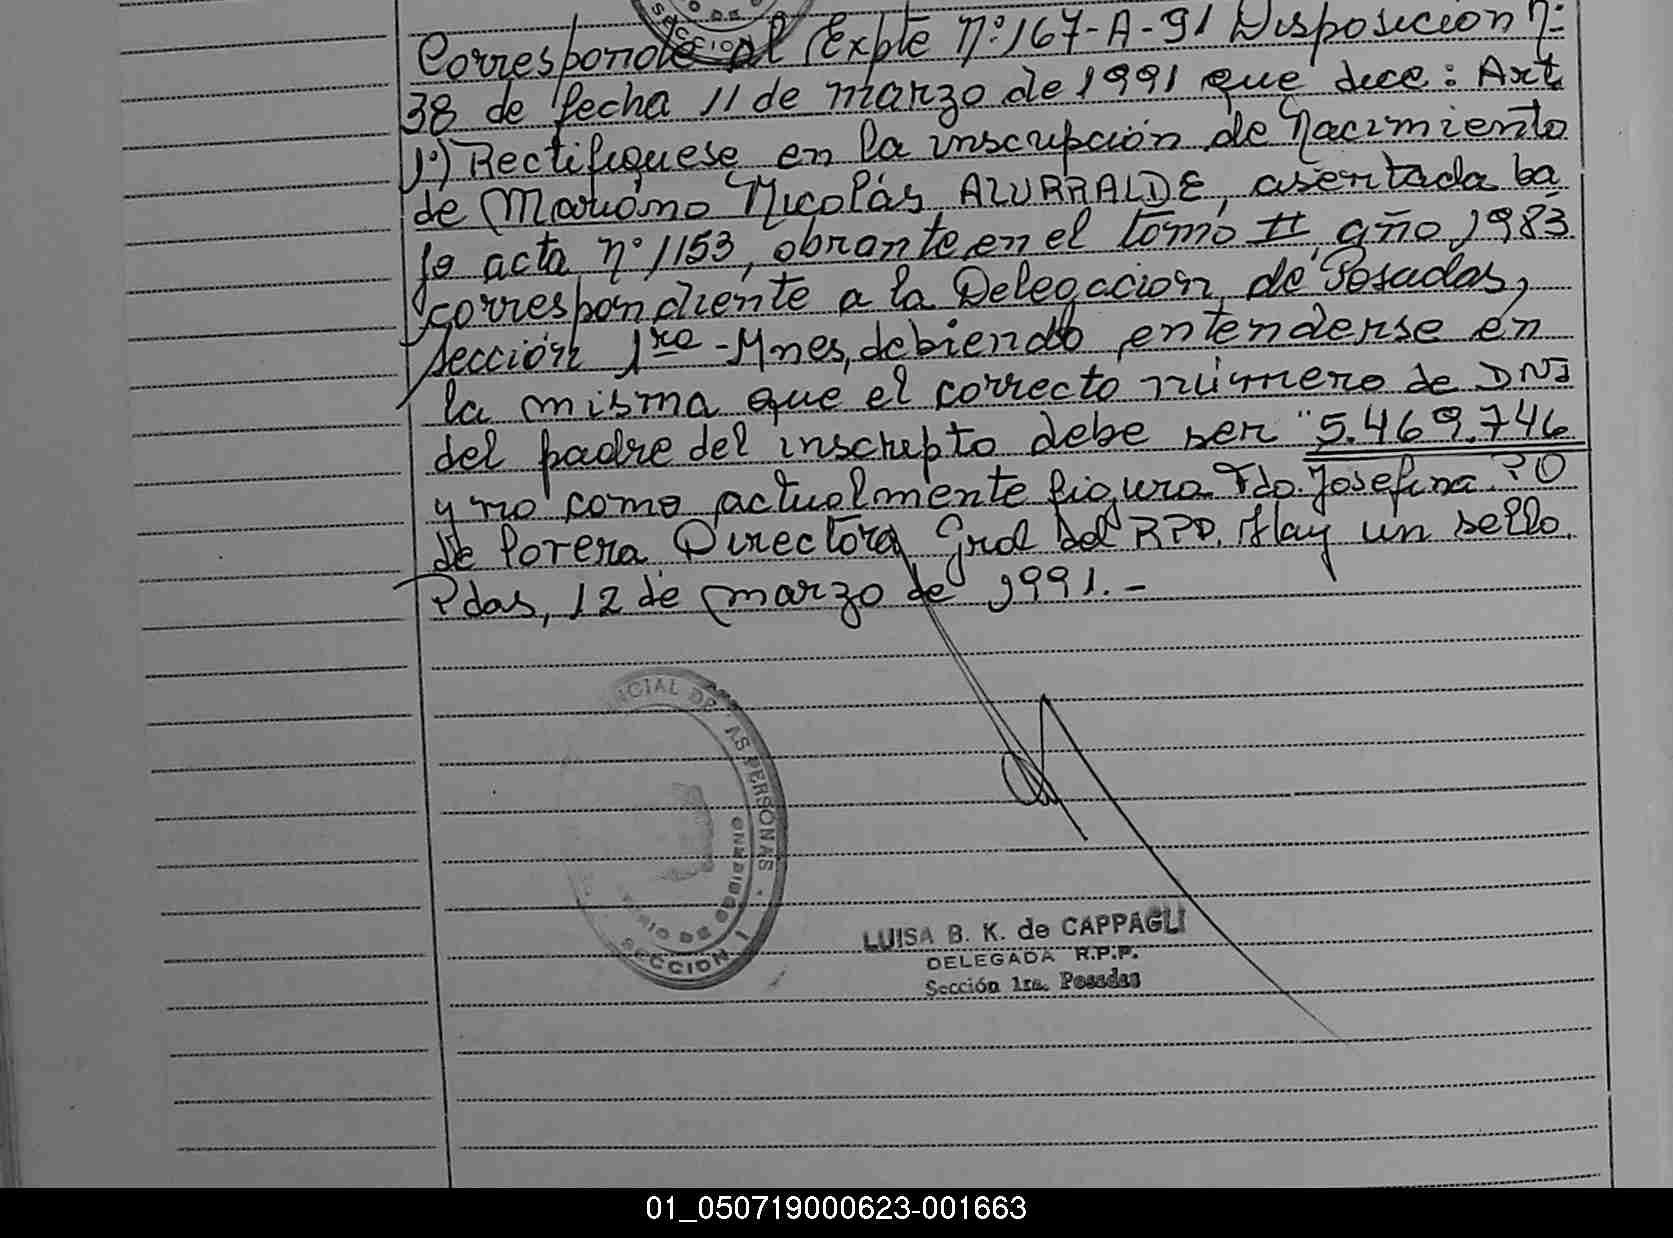 Corresponde al Expte nº 167-A-91 Disposición nº
38 de fecha 11 de marzo de 1991 que dice: Art
1º) Rectifíquese en la inscripción de Nacimiento
de Mariano Nicolás AZURRALDE, asentada ba
jo acta nº 1153, obrante en el tomo II año 1983
correspondiente a la Delegación de Posadas,
sección 1ra - Mnes, debiendo entenderse en
la misma que el correcto número de DNI
del padre del inscripto debe ser "5.469.746
y no como actualmente figura. Fdo. Josefina PO
de Directora Gral del RPP. Hay un sello.
Pdas, 12 de marzo de 1991.-
CIAL DE AS PERSONAS
SECCION 1
LUISA B. K. de CAPPAGLI
DELEGADA R.P.P.
Sección 1ra. Posadas
01_050719000623-001663